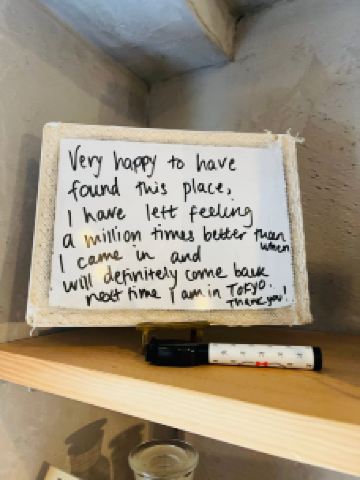 Very happy to have
found this place,
I have left feeling
a million times better than
when
I came in and
will definitely come back
next time I am in TOKYO.
Thank you!